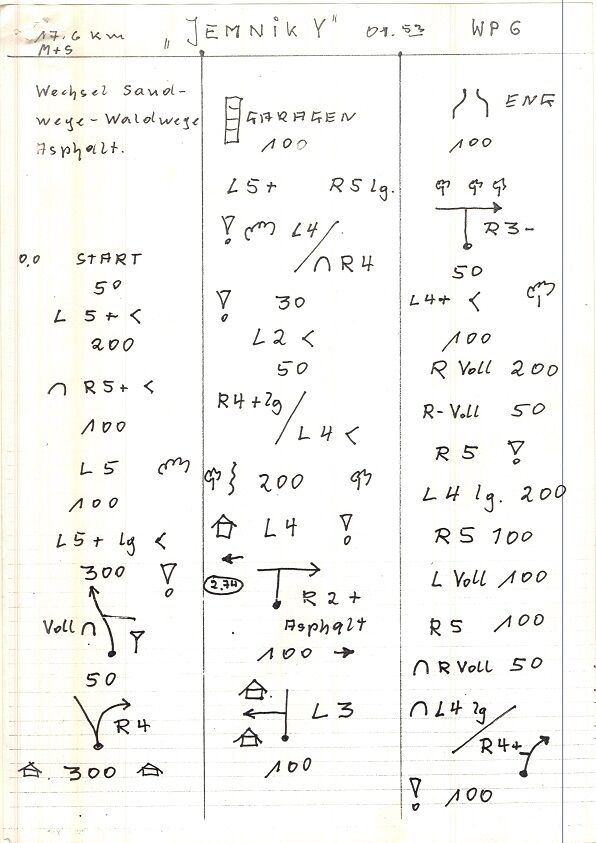 17.6 km „JEMNiKY" 09.53 WP 6
M+S
Wechsel Sand-
wege-Waldwege
Asphalt.
0,0 START
50
L 5 + <
200
∩ R5+ <
100
L 5
100
L5+ lg <
300 !
Voll ∩
50
R4
300
GARAGEN
100
L5+ R5 lg.
! L4
∩ R4
! 30
L2 <
50
R4+lg
L4 <
} 200
L4 !
2.74
R2+
Asphalt
100 →
L3
100
ENG
100
R3-
50
L4+ <
100
R Voll 200
R-Voll 50
R5 !
L4 lg. 200
R5 100
L Voll 100
R5 100
∩ R Voll 50
∩ L4 lg
R4+
! 100